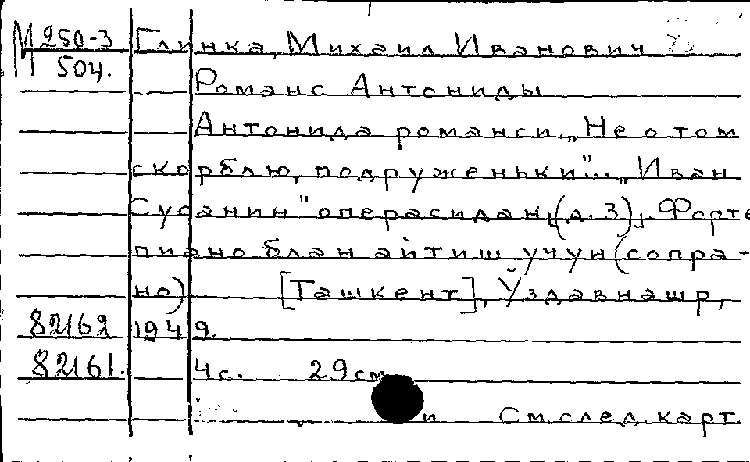 М 250-3 Глинка, Михаил Иванович
504.
Романс Антониды
Антонида романси. „Не о том
скорблю, подруженьки"... „Иван
Сусанин" операсидан, (д. 3). Форте
пиано блан айтиш учун (сопра-
но) [Ташкент], Ўздавнашр,
82162 1949.
82161. 4с. 29см
и См. след. карт.